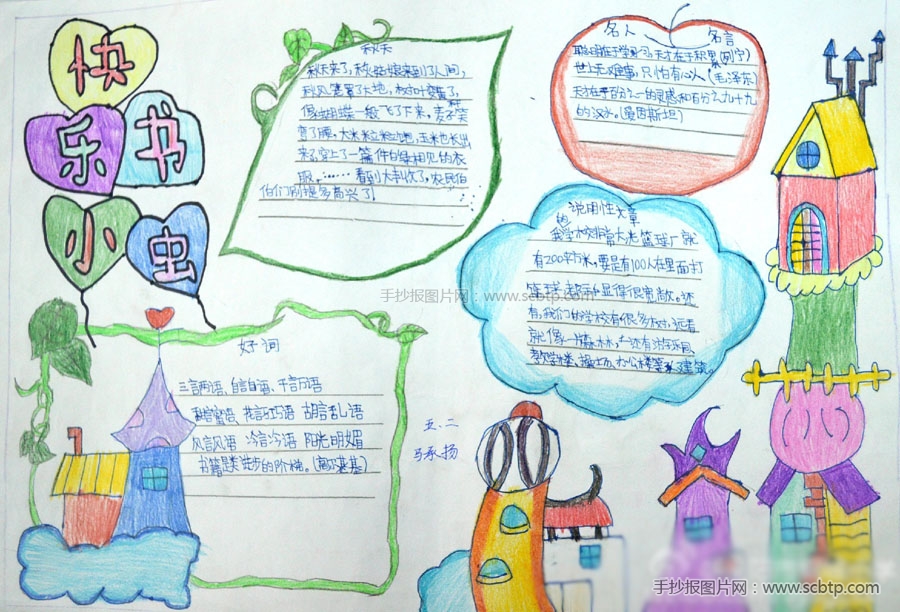 快
乐书
小虫
秋天
秋天来了,秋姑娘来到了人间,
秋风宽了大地,树叶黄了,
像蝴蝶一般飞了下来。麦子笑
弯了腰,大米粒粒饱,玉米也长出
来了,穿上了一篇件的绿相见的衣
服。……看到大丰收了,农民伯
伯们别提多高兴了!
名人 名言
聪明在于学习,天才在于积累(列宁)
世上无难事,只怕有心人(毛泽东)
天才在于百分之一的灵感和百分之九十九
的汉水。(爱因斯坦)
说用性文章
我的学校非常大,光篮球厂就
有200平方米,要是有100人在里面打
篮球,都显得很宽敞。还
有,我们的学校有很多树,远看
就像一片森林,还有游乐园
教学楼、操场、办公楼等建筑。
好词
三言两语、自言自语、千言万语
甜言蜜语、花言巧语 胡言乱语
风言风语 冷言冷语 阳光明媚
书籍是人类进步的阶梯。(高尔基)
五.二
马承扬
手抄报图片网:www.scbtp.com
手抄报图片网:www.scbtp.com